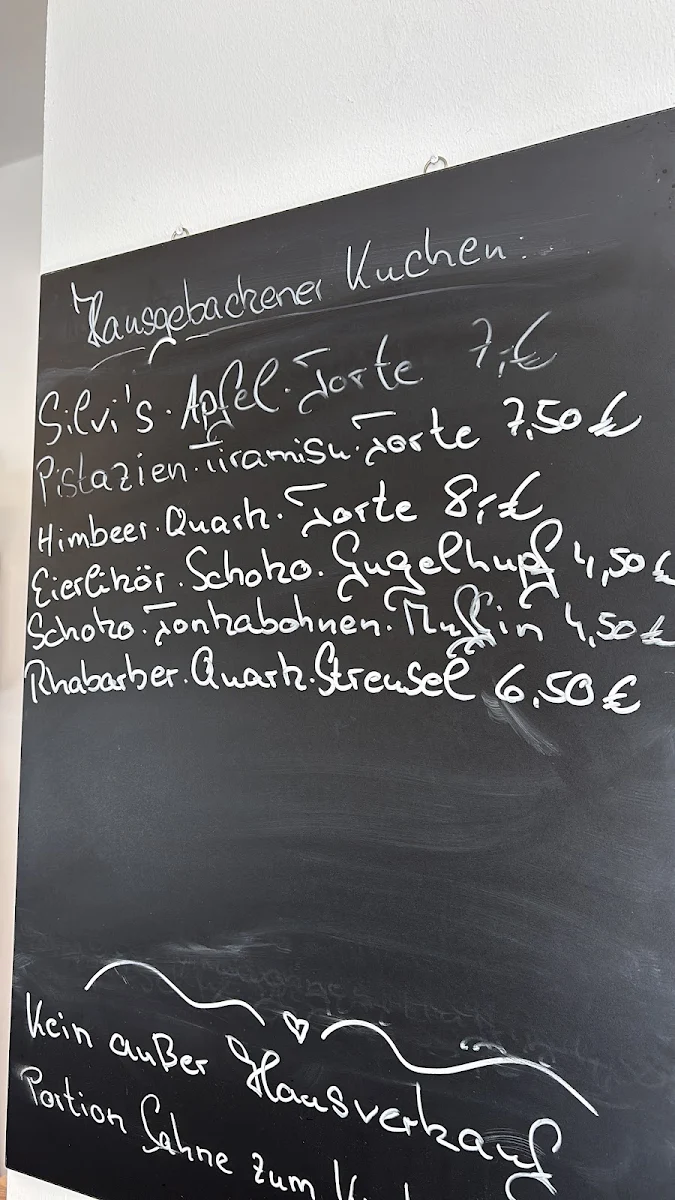 Hausgebackener Kuchen:
Silvi's·Apfel·Torte 7,-€
Pistazien·Tiramisu·Torte 7,50 €
Himbeer·Quark·Torte 8,-€
Eierlikör·Schoko·Gugelhupf 4,50 €
Schoko·Tonkabohnen·Muffin 4,50 €
Rhabarber·Quark·Streusel 6,50 €
Kein außer Hausverkauf
Portion Sahne zum